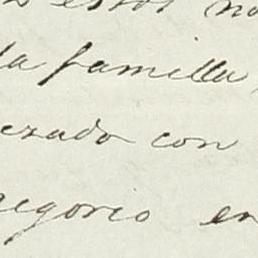 estos no
la familia,
ezado con
egorio en